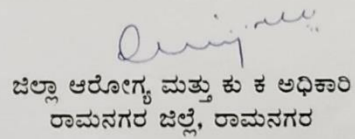 ಜಿಲ್ಲಾ ಆರೋಗ್ಯ ಮತ್ತು ಕು ಕ ಅಧಿಕಾರಿ
ರಾಮನಗರ ಜಿಲ್ಲೆ, ರಾಮನಗರ